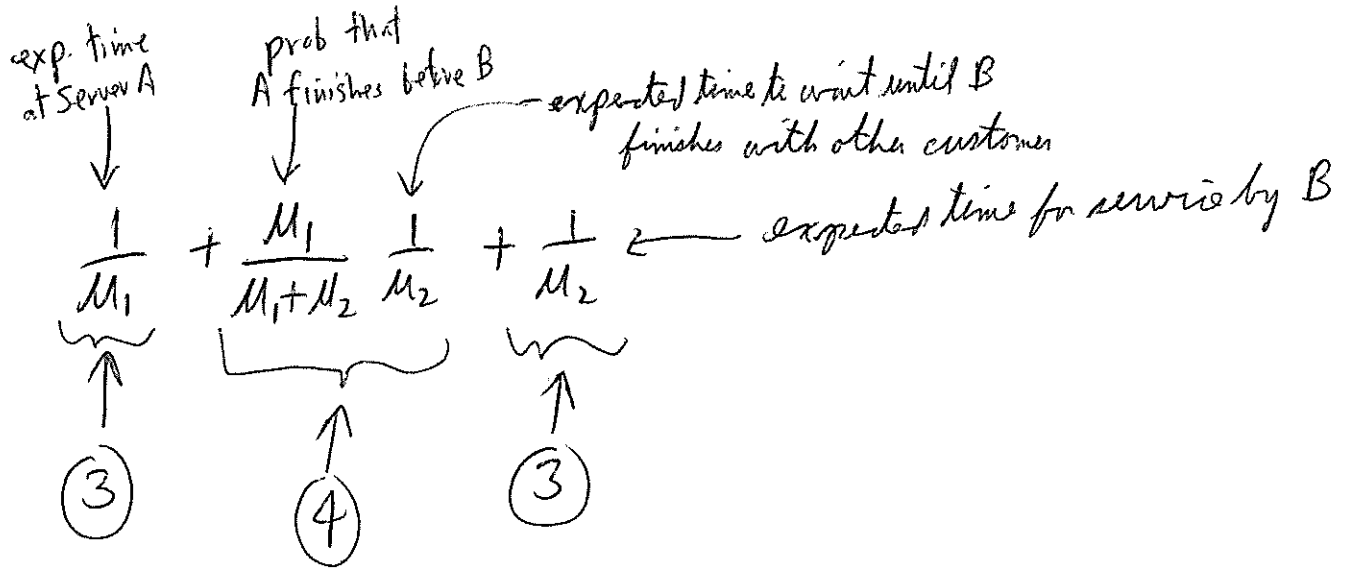 exp. time
at Server A
prob that
A finishes before B
expected time to wait until B
finishes with other customer
1/μ₁ + μ₁/(μ₁+μ₂) 1/μ₂ + 1/μ₂
expected time for service by B
3
4
3